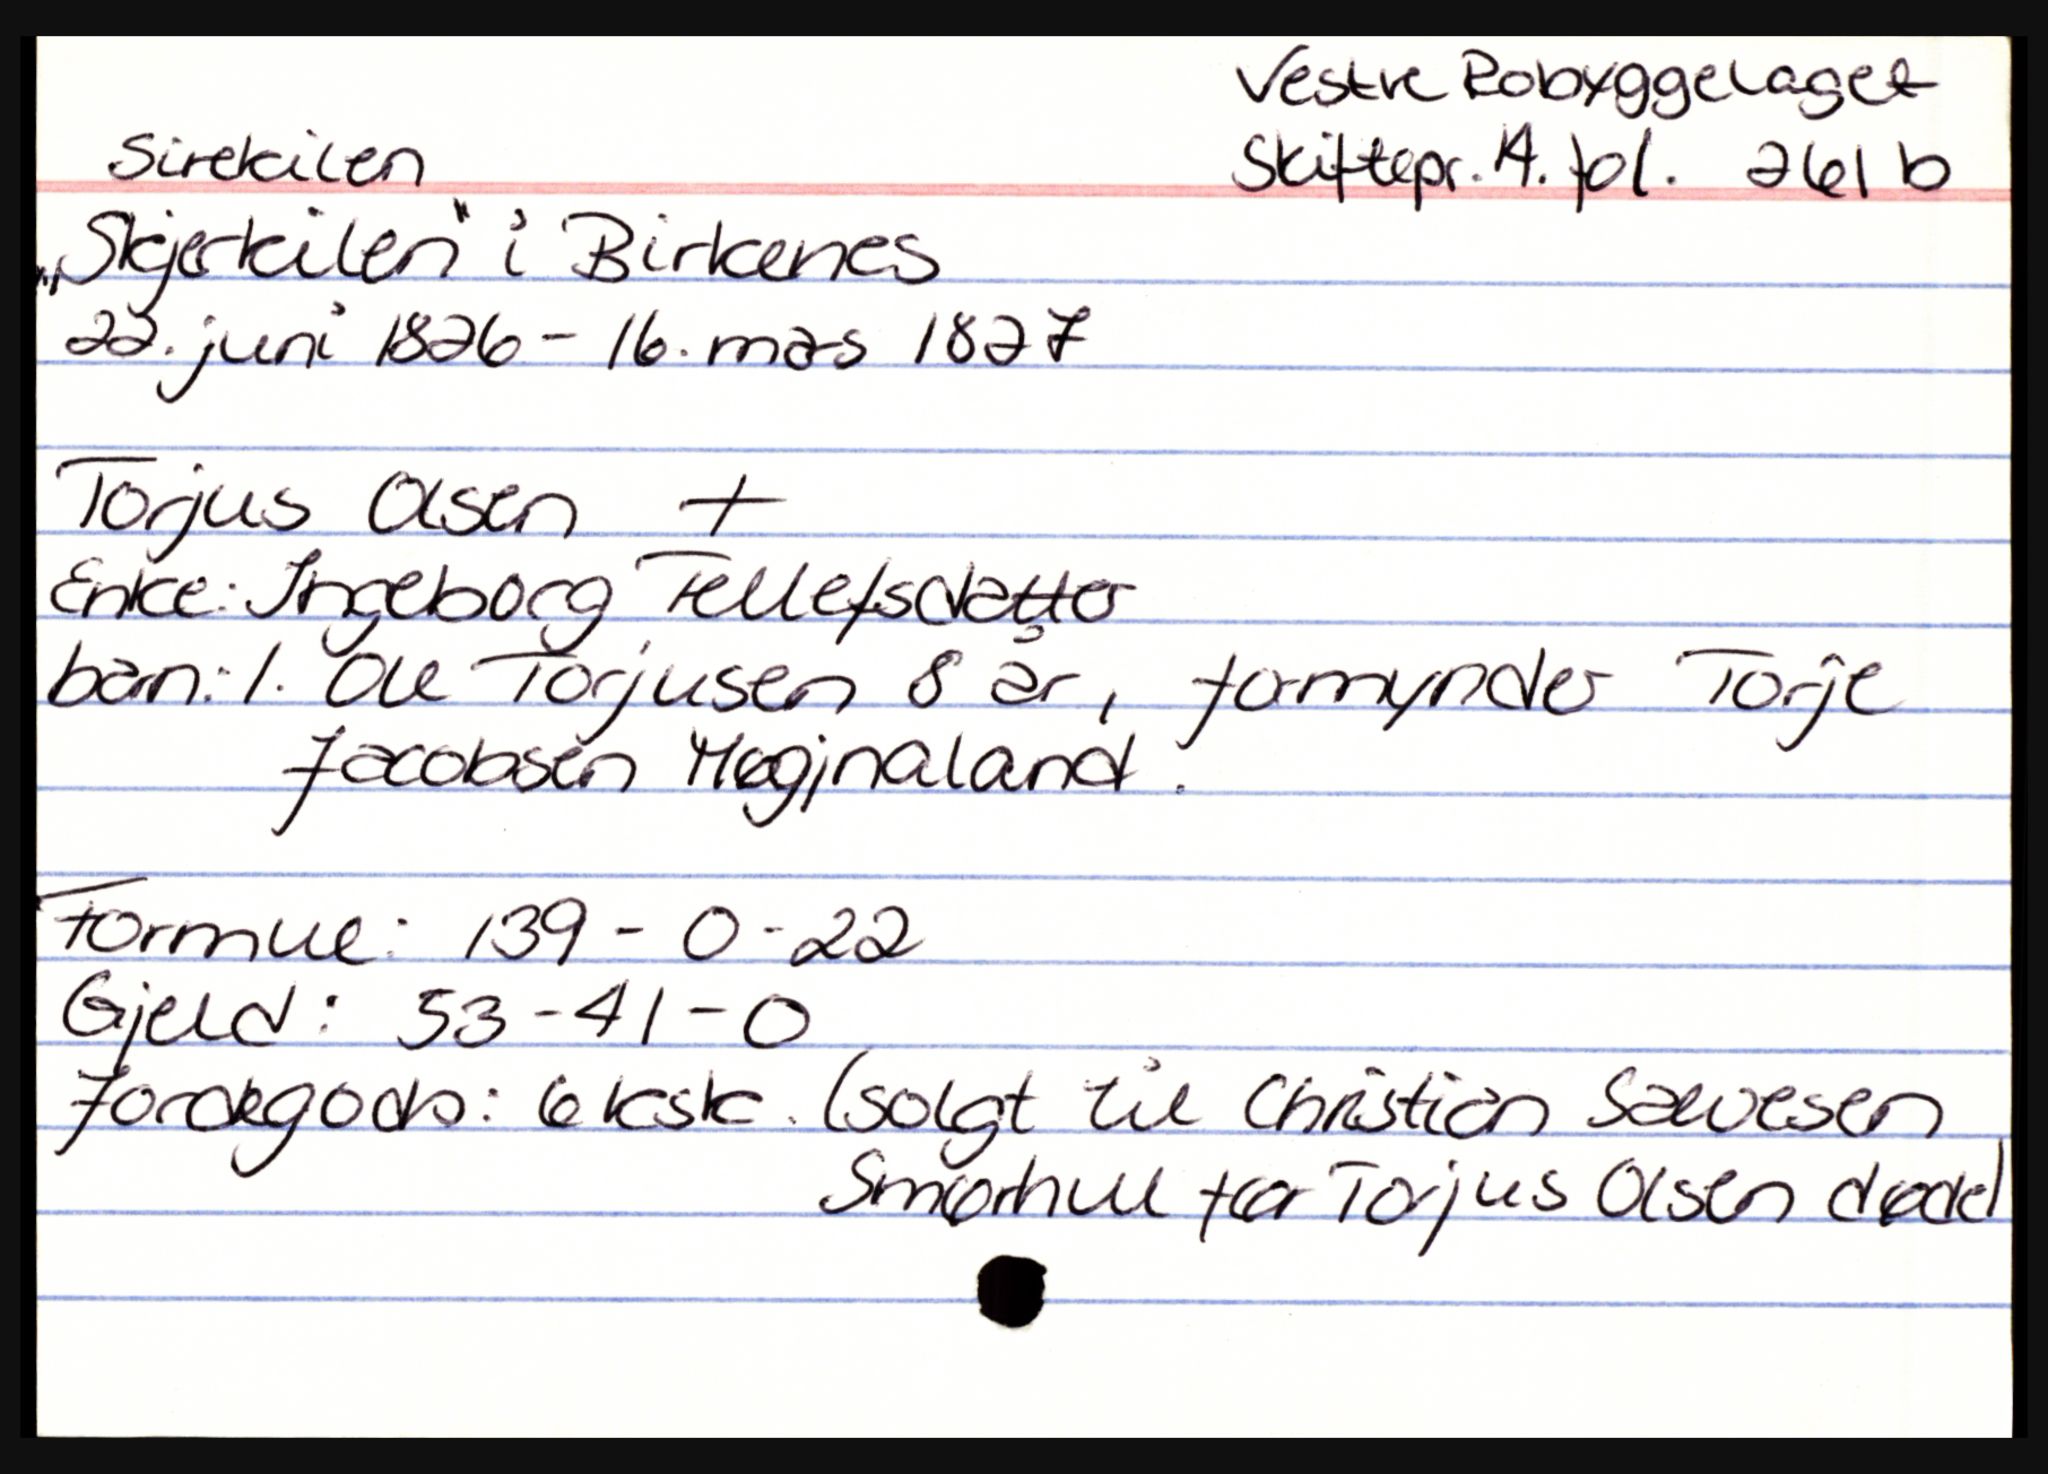 Vestre Robyggelaget
Sirekilen
Skiftepr. 14. fol. 261 b
"Skjerkilen" i Birkenes
22. juni 1826 - 16. mas 1827
Torjus Olsen +
Enke: Ingeborg Tellefsdatter
barn: 1. Ole Torjusen 8 år, formynder Torje
Jacobsen Høgjnaland.
Formue: 139 - 0 - 22
Gjeld: 53 - 41 - 0
Jordegods: 6 ksk. (solgt til Christian Sævesen
Smørhull før Torjus Olsen døde)